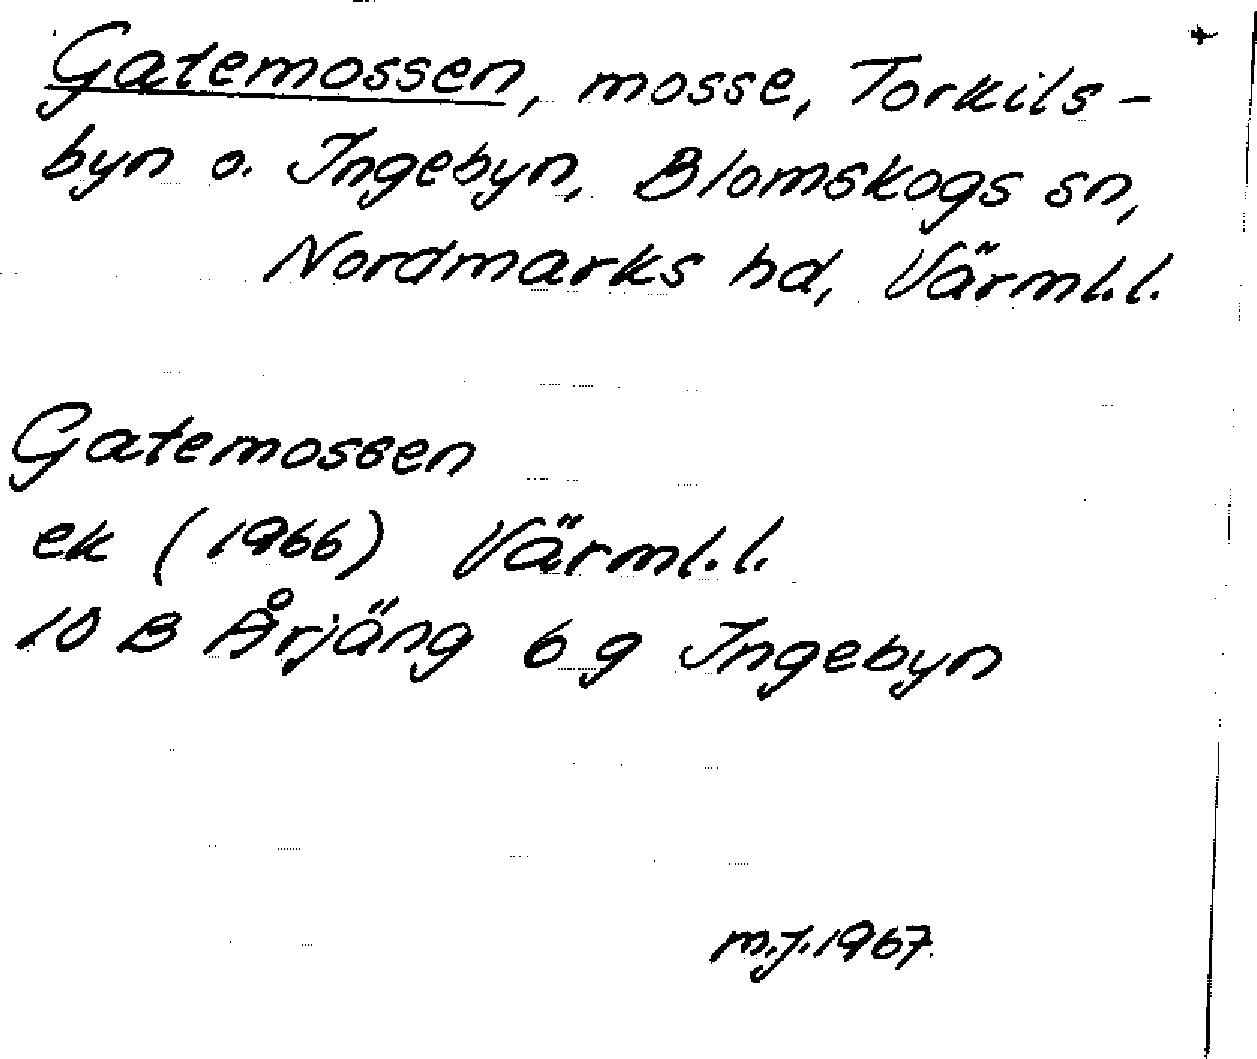 Gatemossen, mosse, Torkils-
byn o. Ingebyn, Blomskogs sn,
Nordmarks hd, Värml.l.
Gatemossen
ek (1966) Värml.l.
10 B Årjäng 6 g Ingebyn
m.j.1967.